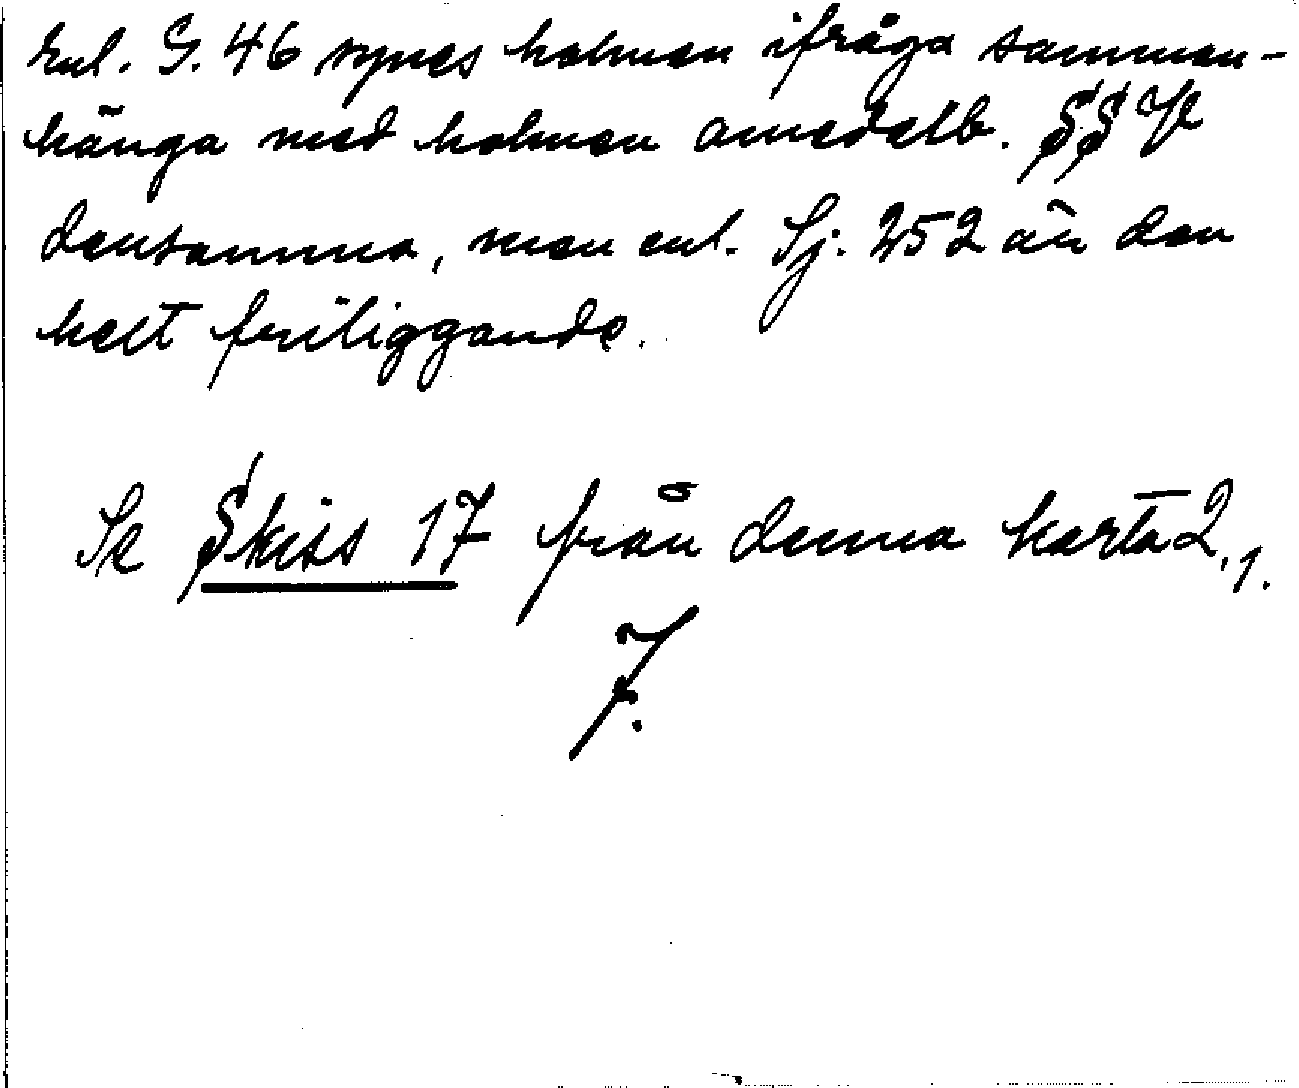 Enl. G. 46 synes holmen ifråga samman-
hänga med holmen omedelb. SSV
densamma, men enl. Sj. 252 är den
helt friliggande.
Se Skiss 17 från denna karta 2, 1.
7.